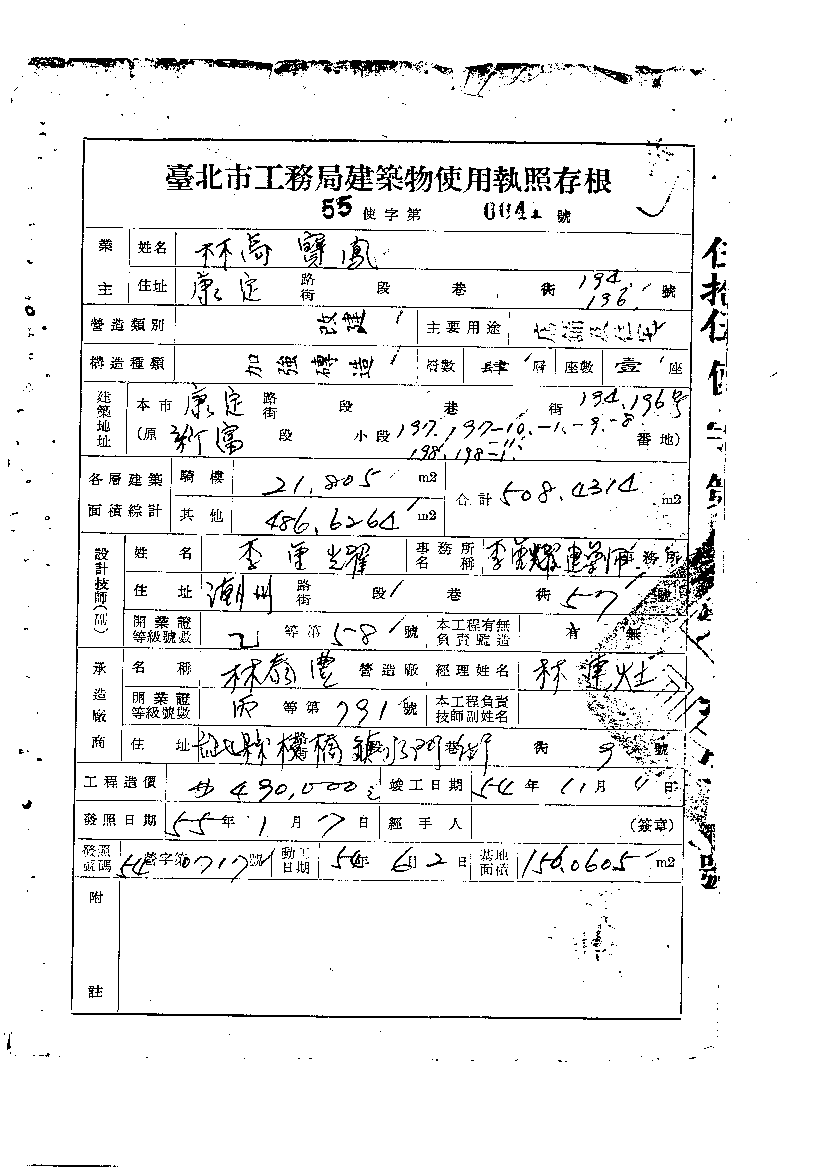 臺北市工務局建築物使用執照存根
55 使字第 號
業主 姓名 林高寶鳳
住址 康定 路街 段 巷 街 194. 196. 號
營造類別 改建 主要用途 店舖及住宅
構造種類 加強磚造 層數 肆 層 座數 壹 座
建築地址 本市 康定 路街 段 巷 街 194.196号
(原 新富 段 小段 197.197-10.-1.-9.-8 198.198-1. 番地)
各層建築面積綜計 騎樓 21.805 m2 合計 508.4314 m2
其他 486.6264 m2
設計技師(副) 姓名 李重耀 事務所名稱 李重耀建築師事務所
住址 潮州 路街 段 巷 街 57 號
開業證等級號數 乙 等第 581 號 本工程有無負責監造 有 無
承造廠商 名稱 林泰豊 營造廠 經理姓名 林連灶
開業證等級號數 丙 等第 791 號 本工程負責技師副姓名
住址 台北縣板橋鎮 街 9 號
工程造價 490,000 竣工日期 54年11月4日
發照日期 55年1月7日 經手人 (簽章)
發照號碼 54營字第0717號 動工日期 54年6月2日 基地面積 156.0605 m2
附註
伍拾伍使字第
號